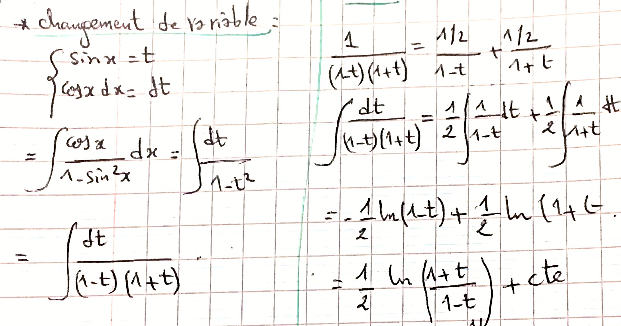 * changement de variable :
{ sin x = t
{ cos x dx = dt
= ∫ cos x / (1 - sin² x) dx = ∫ dt / (1 - t²)
= ∫ dt / ((1-t)(1+t))
1 / ((1-t)(1+t)) = 1/2 / (1-t) + 1/2 / (1+t)
∫ dt / ((1-t)(1+t)) = 1/2 ∫ 1/(1-t) dt + 1/2 ∫ 1/(1+t) dt
= - 1/2 ln(1-t) + 1/2 ln (1+t
= 1/2 ln ((1+t)/(1-t)) + cte